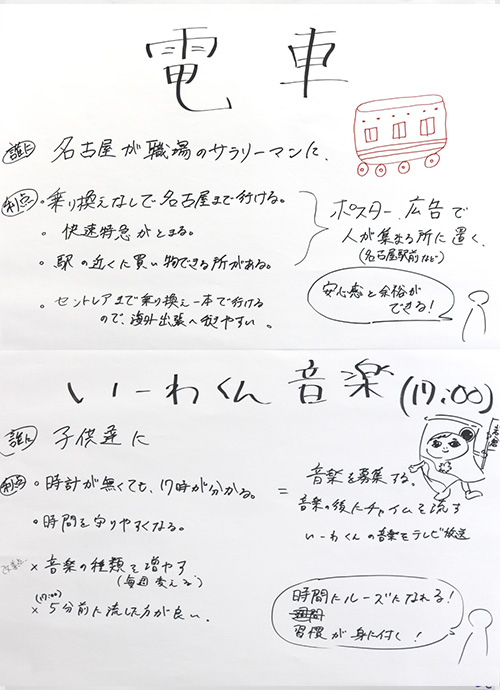 電車
誰に 名古屋が職場のサラリーマンに、
利点 ・乗り換えなしで名古屋まで行ける。
・快速特急がとまる。
・駅の近くに買い物できる所がある。
・セントレアまで乗り換え一本で行ける
ので、海外出張へ行きやすい。
ポスター、広告で
人が集まる所に置く、
(名古屋駅前など)
安心感と余裕が
できる!
いーわくん音楽(17:00)
誰に 子供達に
利点 ・時計が無くても、17時が分かる。
・時間を守りやすくなる。
× 音楽の種類を増やす
(毎週変える)
(17:00)
× 5分前に流した方が良い.
= 音楽を募集する。
音楽の後にチャイムを流す
いーわくんの音楽をテレビ放送
時間にルーズになれる!
習慣が身に付く!